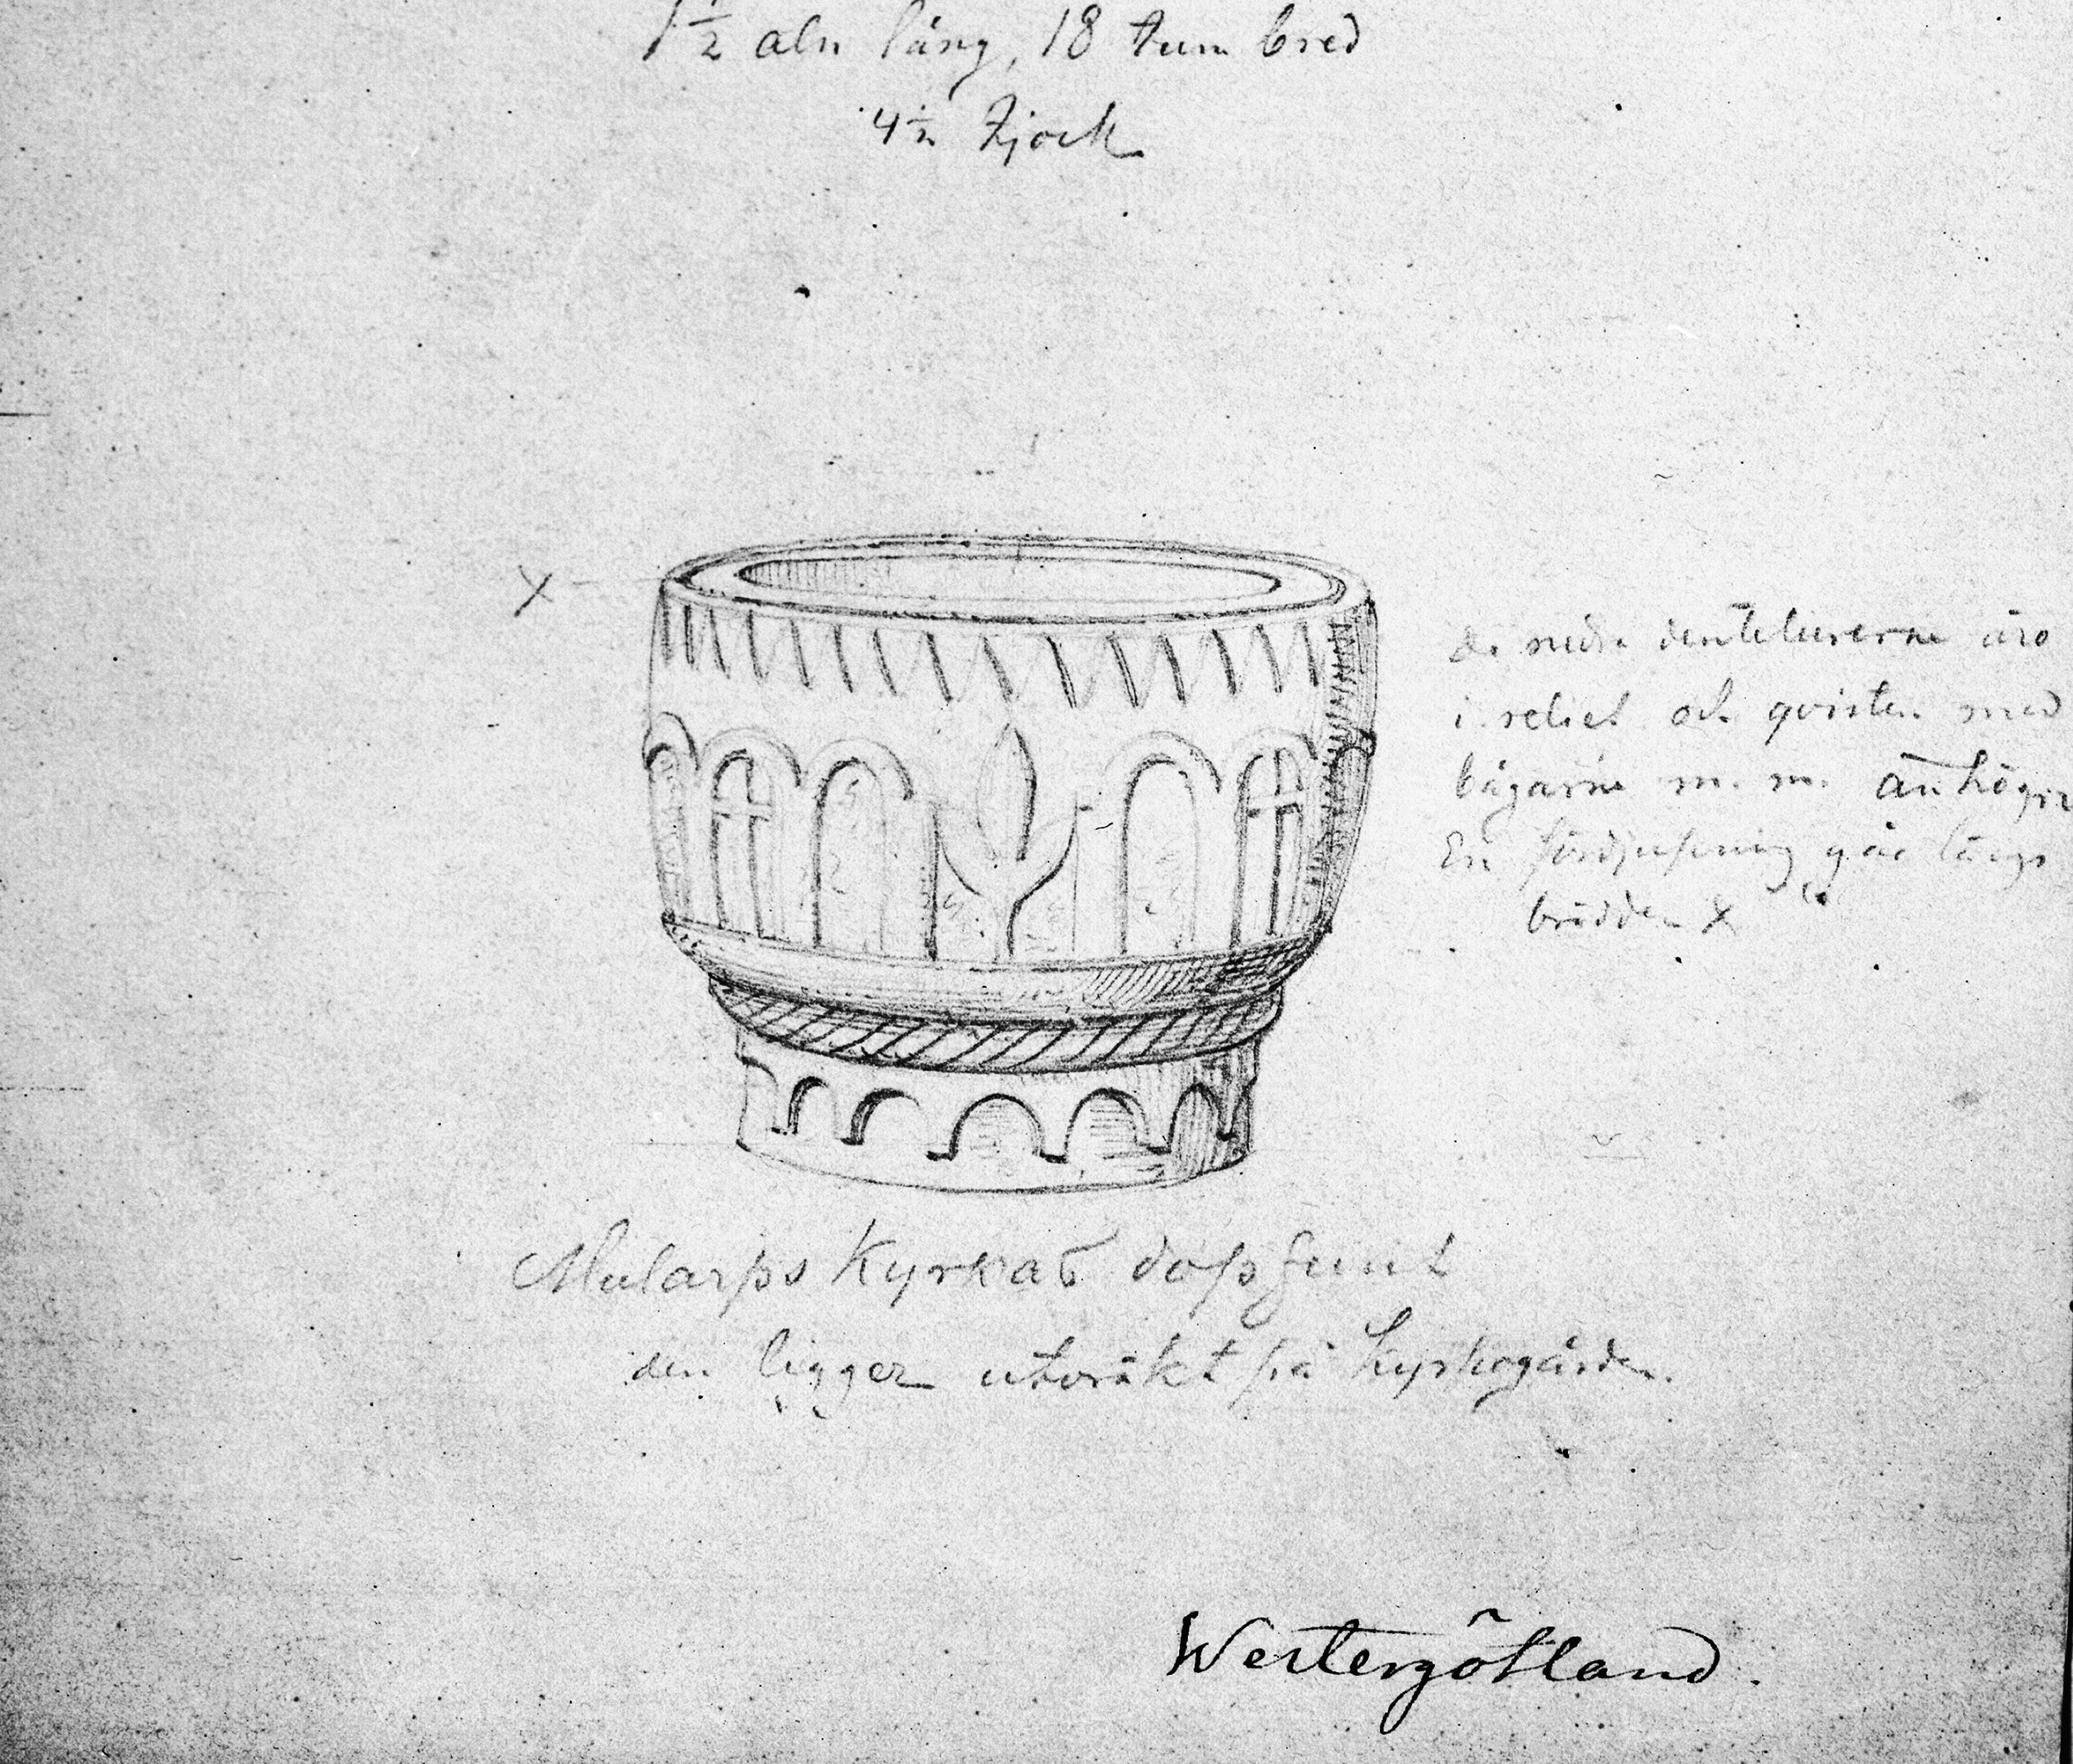 1½ aln lång, 18 tum bred
4½ tjock
X
De nedra denteluurerne äro
i relief och qvisten med
bågarne m. m. än högre
En fördjupning går längs
brädden X
Mularps Kyrkas dopfunt
den ligger utvräkt på Kyrkogården.
Westergötland.